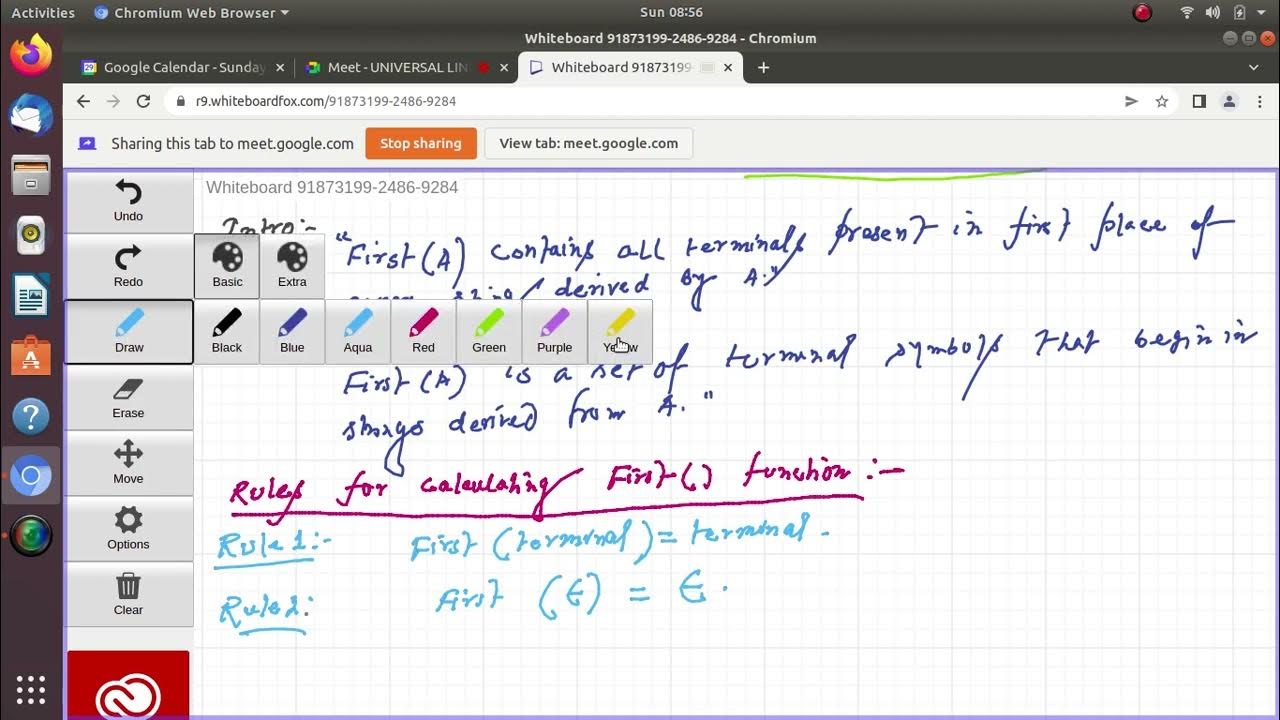 Activities
Chromium Web Browser
Sun 08:56
Whiteboard 91873199-2486-9284 - Chromium
Google Calendar - Sunday
Meet - UNIVERSAL LIN
Whiteboard 91873199-
r9.whiteboardfox.com/91873199-2486-9284
Sharing this tab to meet.google.com
Stop sharing
View tab: meet.google.com
Whiteboard 91873199-2486-9284
Undo
Redo
Draw
Erase
Move
Options
Clear
Basic
Extra
Black
Blue
Aqua
Red
Green
Purple
Yellow
Intro:-
"First(A) contains all terminals present in first place of
derived by A."
First(A) is a set of terminal symbols that begin in
strings derived from A."
Rules for calculating First() function:-
Rule 1:- First (terminal) = terminal.
Rule 2: First (ϵ) = ϵ.